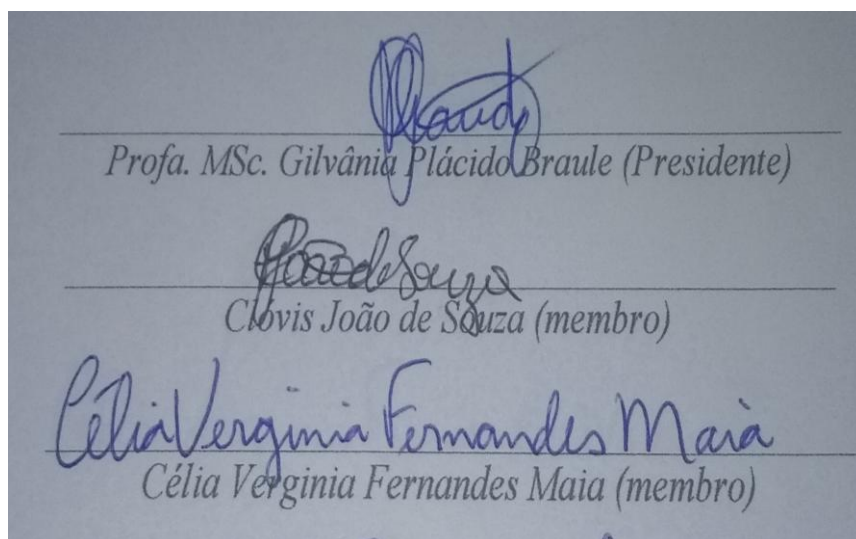 Profa. MSc. Gilvânia Plácido Braule (Presidente)
João de Souza
Clóvis João de Souza (membro)
Célia Verginia Fernandes Maia
Célia Verginia Fernandes Maia (membro)